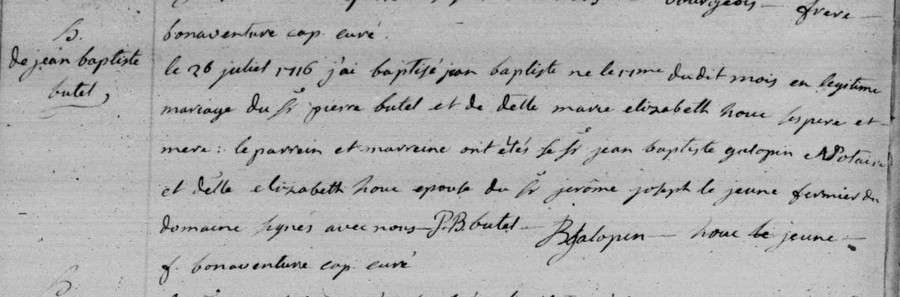 bourgeois frere
bonaventure cap. curé.
B.
de jean baptiste
butel,
le 26 juliet 1716 j'ai baptisé jean baptiste ne le 11me dudit mois en legitime
mariage du Sr pierre butel et de delle marie elizabeth houe ses pere et
mere : le parrein et marreine ont étés le Sr jean baptiste galopin Notaire
et delle elizabeth houe epouse du Sr jerôme joseph le jeune fermier du
domaine signés avec nous P. B. butel BGalopin houe le jeune
f. bonaventure cap. curé